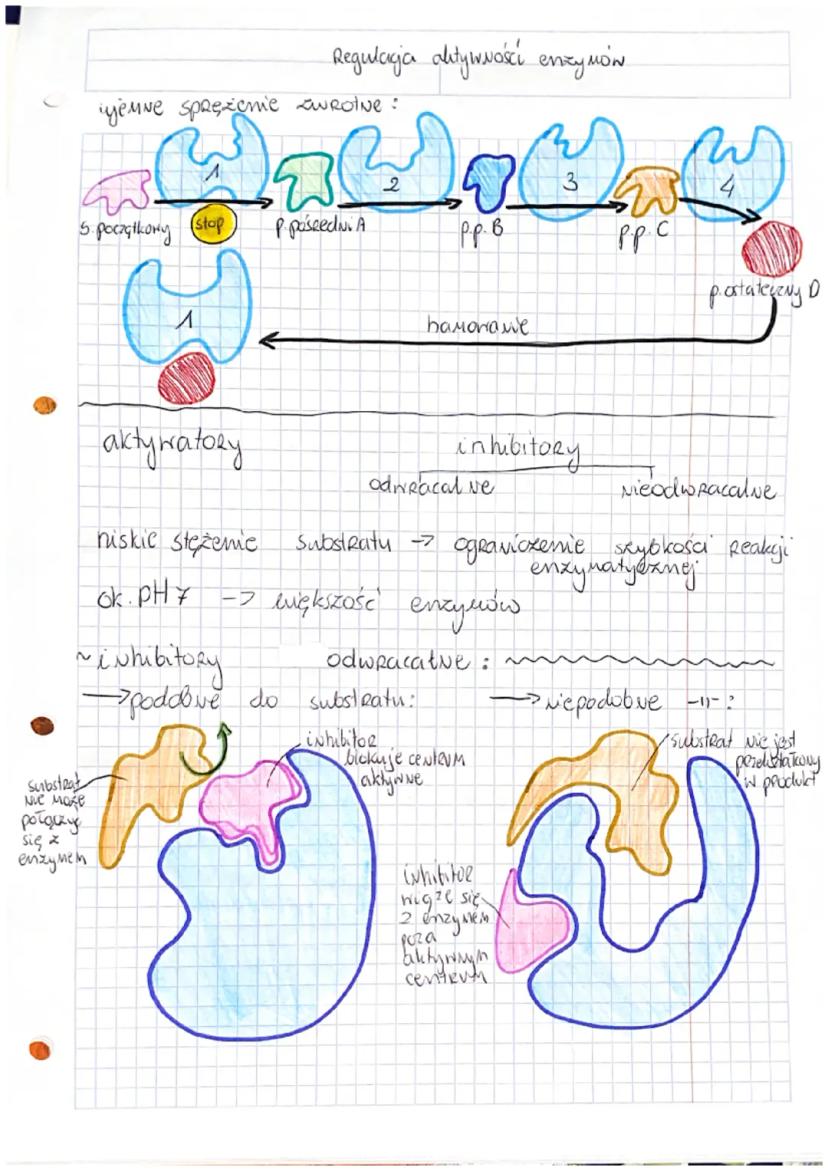 Regulacja aktywności enzymów
ujemne sprężenie zwrotne:
1 2 3 4
s. początkowy stop p. pośredni A p.p. B p.p. C
p. ostateczny D
1
hamowanie
aktywatory inhibitory
odwracalne nieodwracalne
niskie stężenie substratu -> ograniczenie szybkości reakcji
enzymatycznej
ok. pH 7 -> większość enzymów
~ inhibitory odwracalne:
-> podobne do substratu: -> niepodobne -11-:
inhibitor
blokuje centrum
aktywne
substrat
nie może
połączyć
się z
enzymem
substrat nie jest
przekształcony
w produkt
inhibitor
wiąże się
z enzymem
poza
aktywnym
centrum